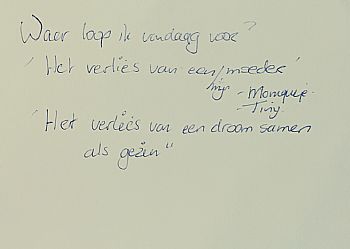 Waar loop ik vandaag voor?
' Het verlies van een/moeder '
mijn
- Monique -
- Tiny -
' Het verlies van een droom samen
als gezin "